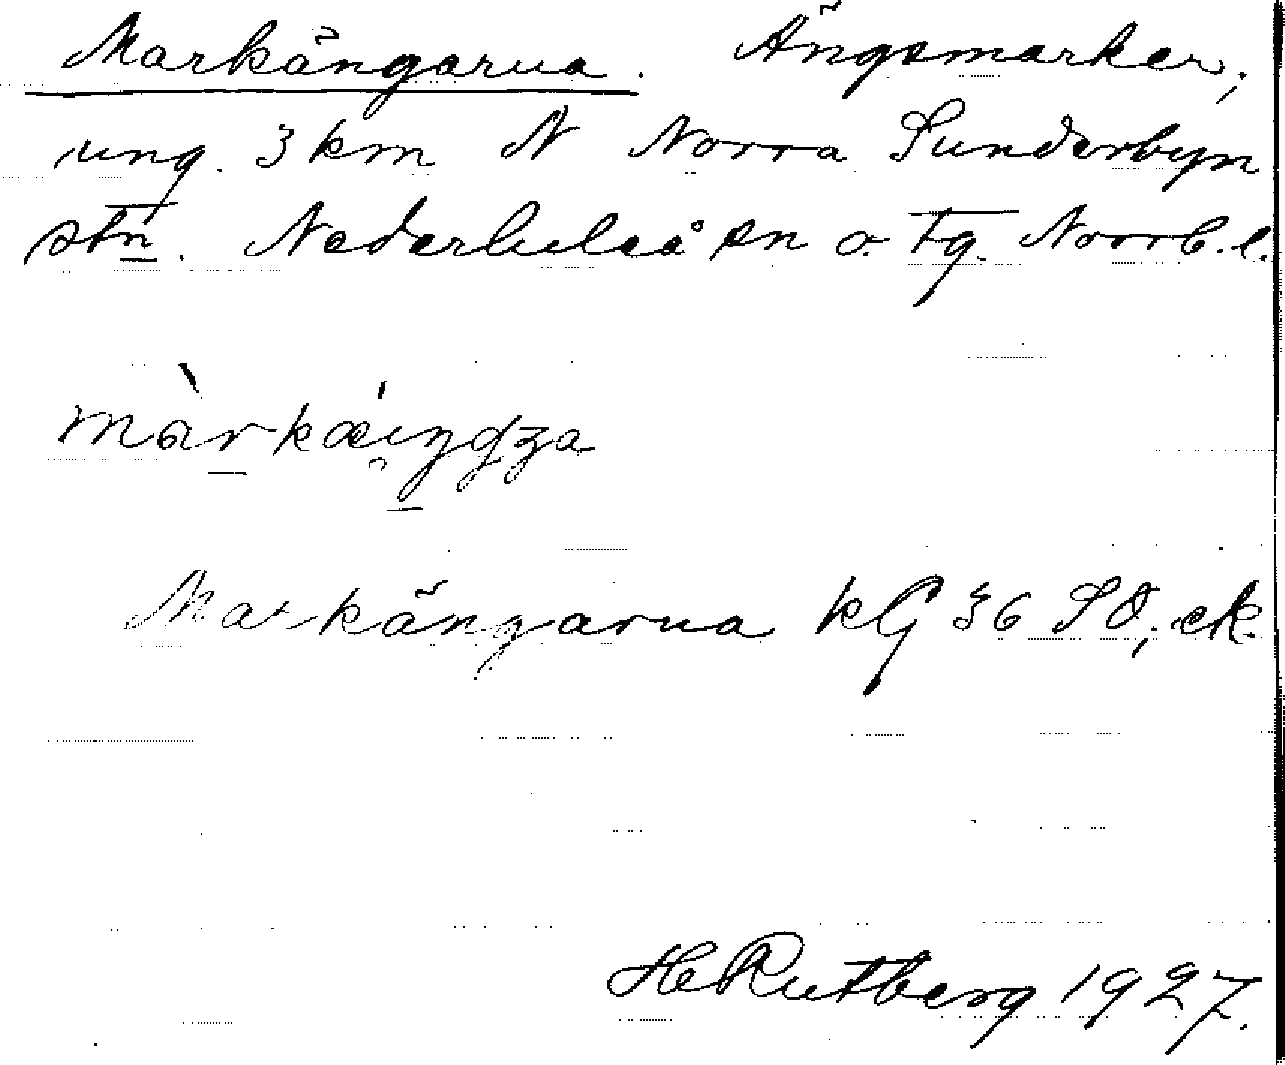 Markängarna. Ängsmarker,
ung. 3 km N Norra Sunderbyn
stn. Nederluleå sn o. tg. Norrb. l.
Markängarna kG 36 SO, ek.
HeRutberg 1927.